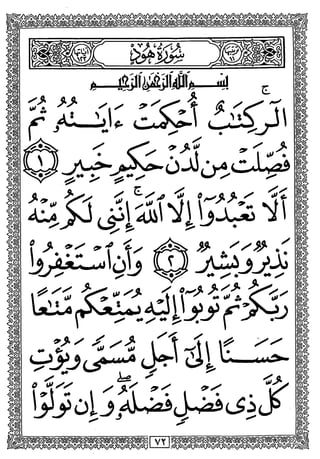 سُورَةُ هُودٍ
بِسْمِ اللَّهِ الرَّحْمَٰنِ الرَّحِيمِ
الٓر ۚ كِتَٰبٌ أُحْكِمَتْ ءَايَٰتُهُۥ ثُمَّ
فُصِّلَتْ مِن لَّدُنْ حَكِيمٍ خَبِيرٍ ١
أَلَّا تَعْبُدُوٓا۟ إِلَّا ٱللَّهَ ۚ إِنَّنِى لَكُم مِّنْهُ
نَذِيرٌ وَبَشِيرٌ ٢ وَأَنِ ٱسْتَغْفِرُوا۟
رَبَّكُمْ ثُمَّ تُوبُوٓا۟ إِلَيْهِ يُمَتِّعْكُم مَّتَٰعًا
حَسَنًا إِلَىٰٓ أَجَلٍ مُّسَمًّى وَيُؤْتِ
كُلَّ ذِى فَضْلٍ فَضْلَهُۥ ۖ وَإِن تَوَلَّوْا۟
٧٢